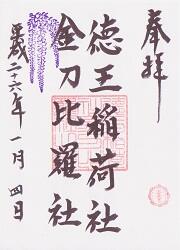 奉拝
徳王稲荷社
金刀比羅社
平成二十六年一月四日